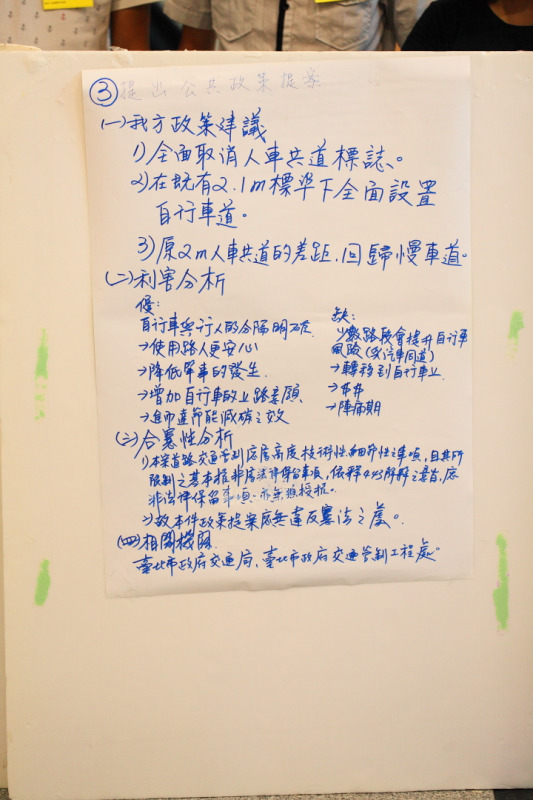 ③ 提出公共政策提案
(一)我方政策建議
1)全面取消人車共道標誌。
2)在既有2.1m標準下全面設置
自行車道。
3)原2m人車共道的差距,回歸慢車道。
(二)利害分析
優:
自行車與行人的分隔明確
→使用路人更安心
→降低肇事的發生
→增加自行車的上路意願
→進而達節能減碳之效
缺:
少數路段會提升自行車
風險(與汽車同道)
→轉移到自行車上
→陣痛期
(三)合憲性分析
1)本案道路交通管制應屬高度技術性和細節性之事項,且其所
限制之基本權非屬法律保留事項,依釋443解釋之意旨,應
非法律保留事項,亦無須授權。
2)故本件政策提案應無違反憲法之虞。
(四)相關機關
臺北市政府交通局、臺北市政府交通管制工程處。